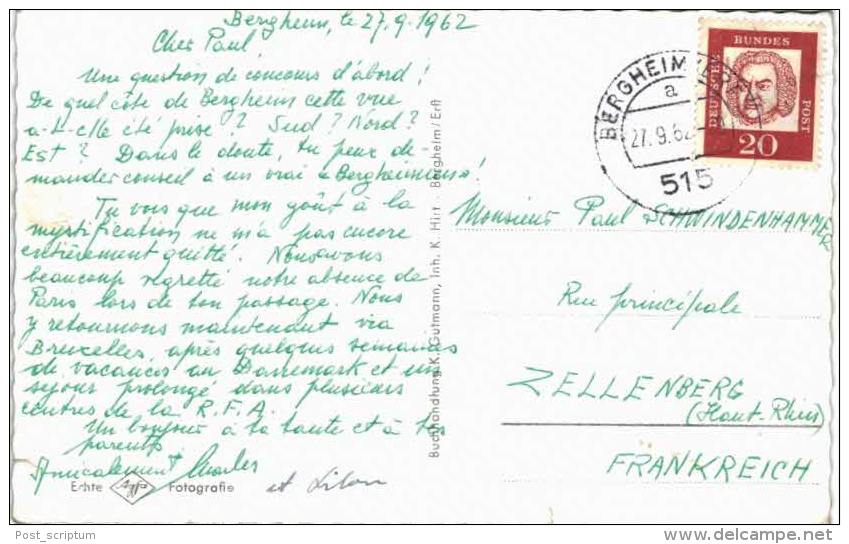 Bergheim, le 27.9.1962
Cher Paul
Une question de concours d'abord!
De quel côté de Bergheim cette vue
a-t-elle été prise? Sud? Nord?
Est? Dans le doute, tu peux de-
mander conseil à un vrai « Bergheimois»!
Tu vois que mon goût à la
mystification ne m'a pas encore
entièrement quitté. Nous avons
beaucoup regretté notre absence de
Paris lors de ton passage. Nous
y retournons maintenant via
Bruxelles, après quelques semaines
de vacances au Dannemark et un
séjour prolongé dans plusieurs
centres de la R.F.A.
Un bonjour à ta tante et à tes
parents
Amicalement Charles
et Lilou
Echte Agfa Fotografie
Buchhandlung K. Gutmann, Inh. K. Hirt · Bergheim/Erft
BERGHEIM (ERFT)
a
27.9.62
515
DEUTSCHE
BUNDES
POST
20
Monsieur Paul SCHWINDENHAMMER
Rue principale
ZELLENBERG
(Haut-Rhin)
FRANKREICH
Post_scriptum
delcampe.net